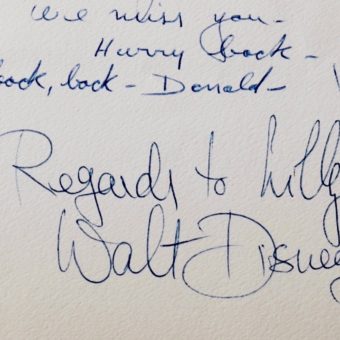 we miss you -
Hurry back -
back, back - Donald -
Regards to Lilly
Walt Disney